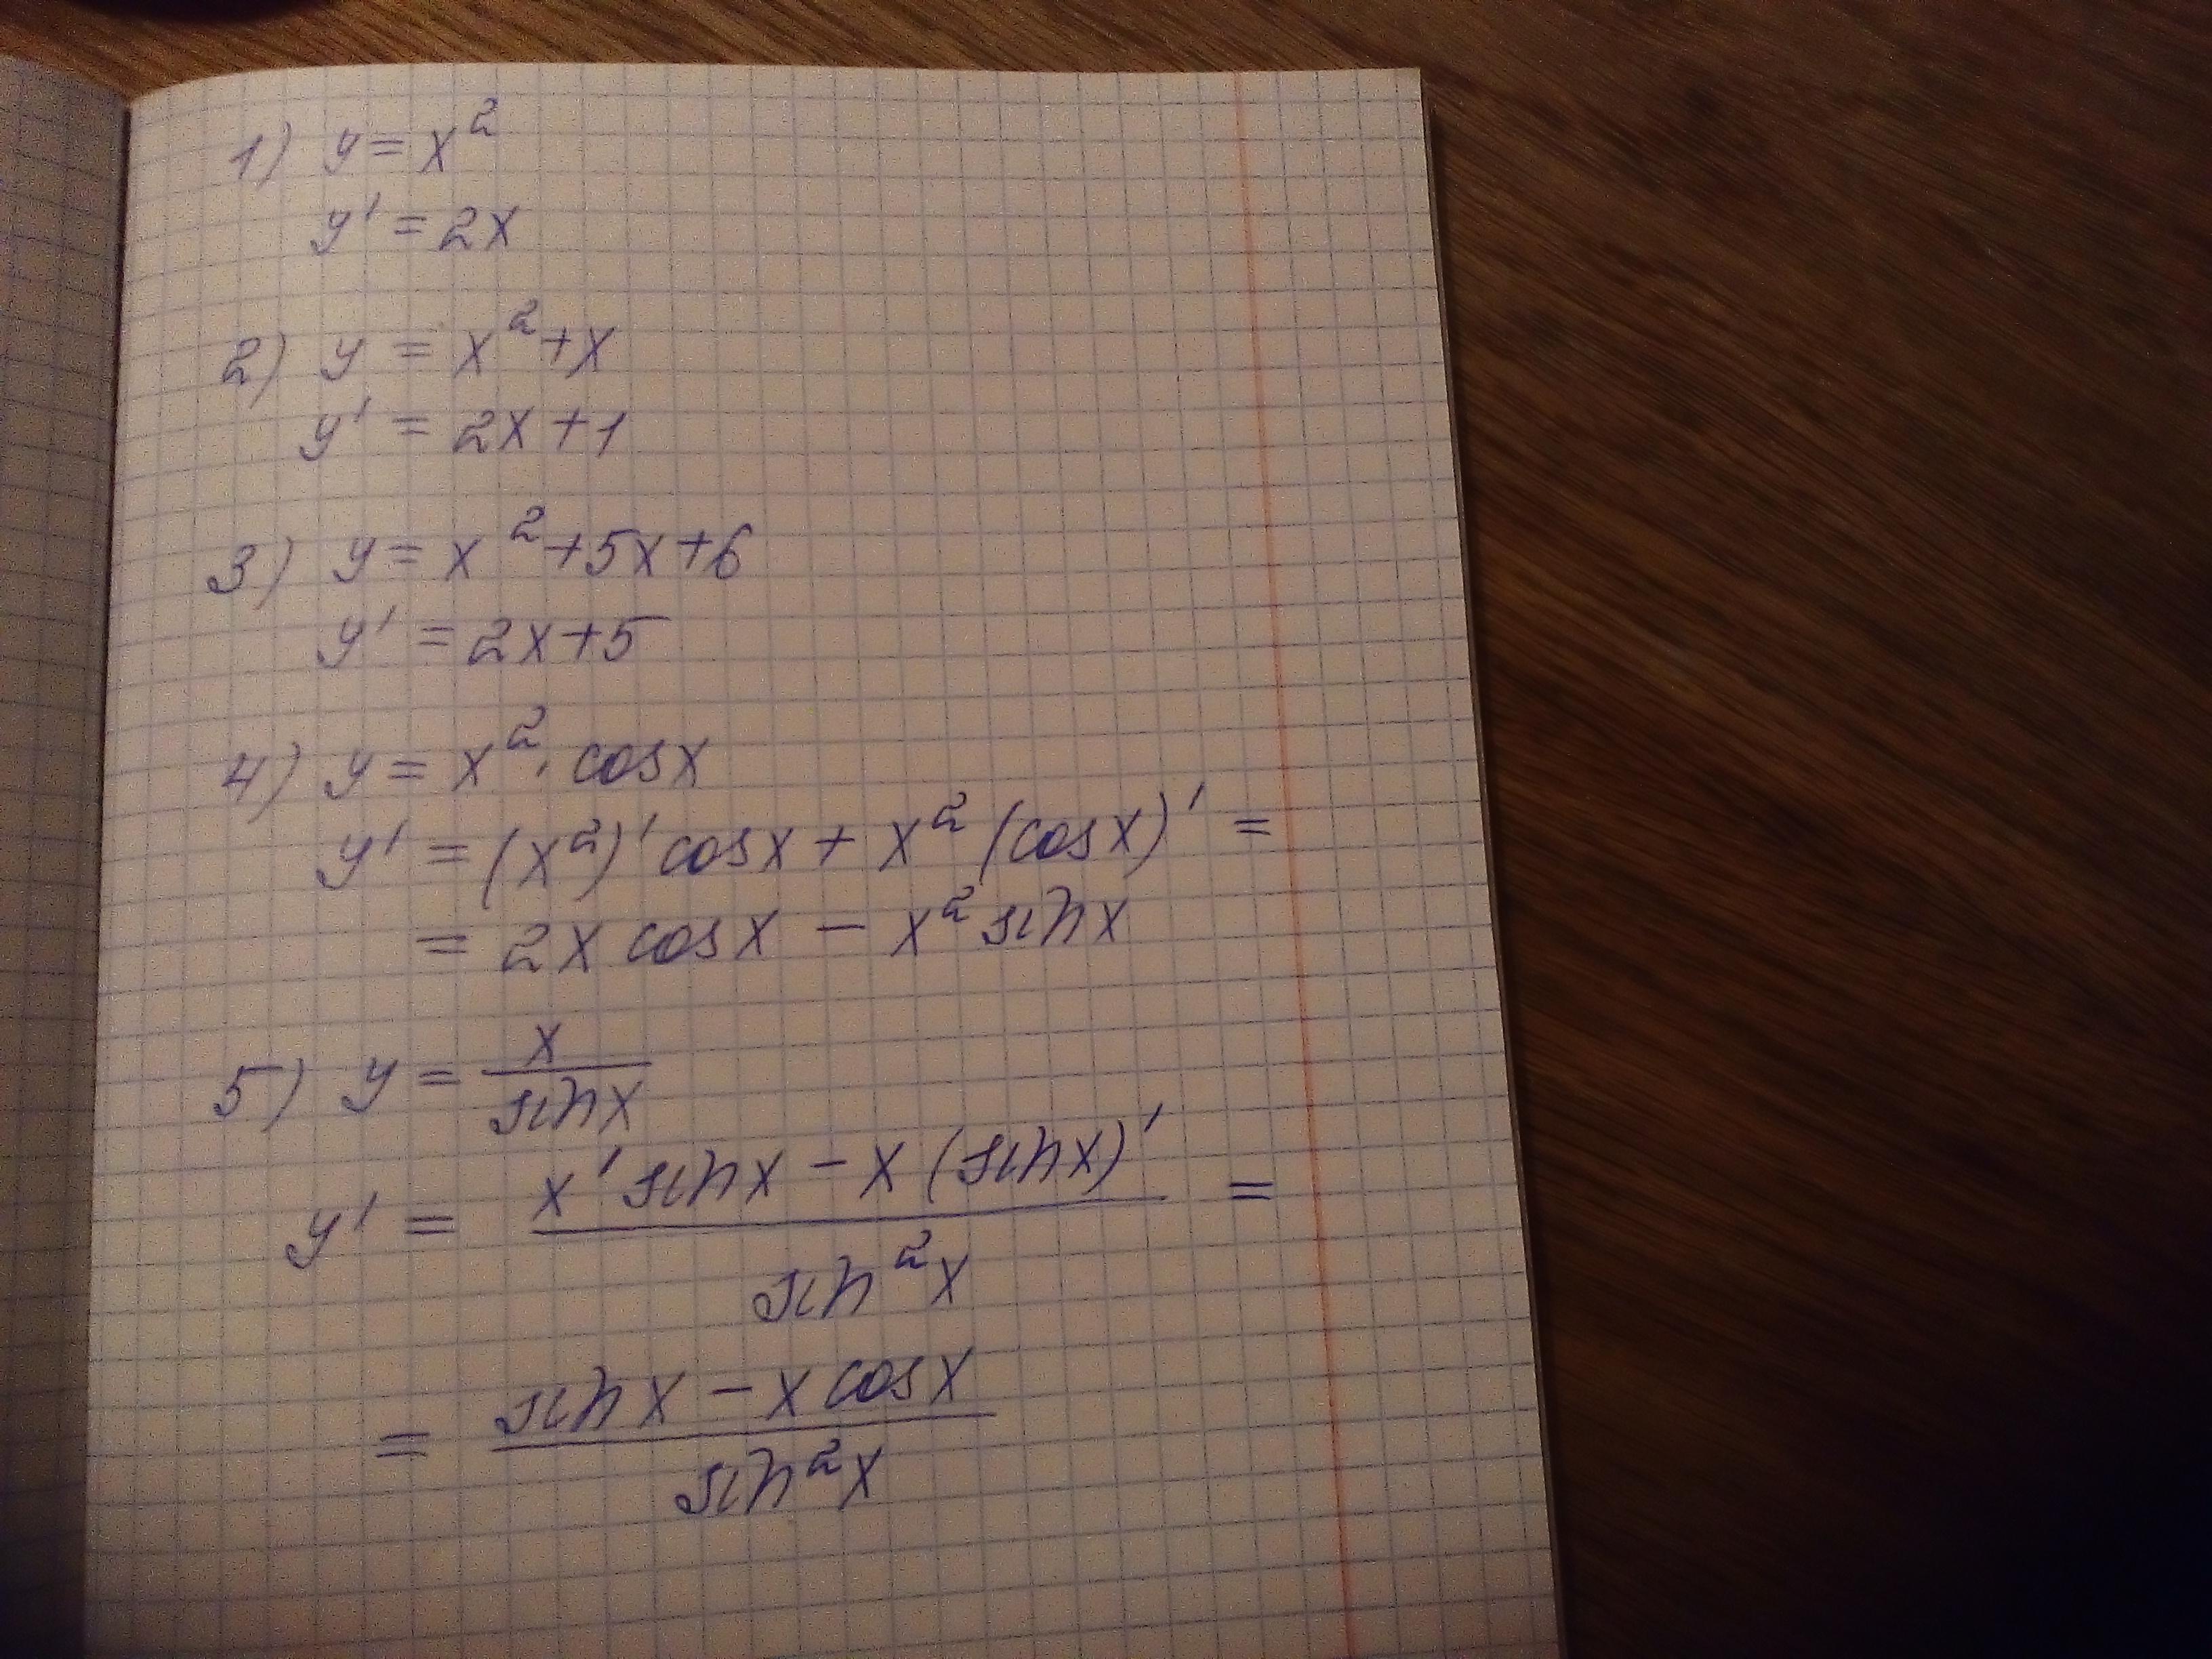 1) y = x²
y' = 2x
2) y = x² + x
y' = 2x + 1
3) y = x² + 5x + 6
y' = 2x + 5
4) y = x² · cosx
y' = (x²)' cosx + x² (cosx)' =
= 2x cosx − x² sinx
5) y = x / sinx
y' = (x' sinx − x (sinx)') / sin²x =
= (sinx − x cosx) / sin²x